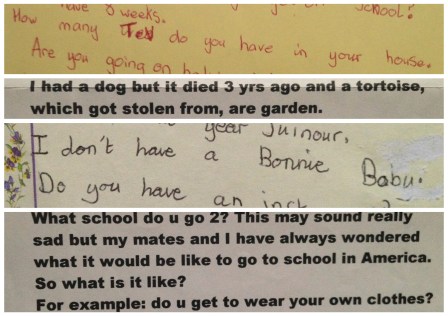 have 8 weeks. school?
How many Tevs do you have in your house.
Are you going on
I had a dog but it died 3 yrs ago and a tortoise,
which got stolen from, are garden.
year Juinour,
I don't have a Bonnie Babu.
Do you have an
What school do u go 2? This may sound really
sad but my mates and I have always wondered
what it would be like to go to school in America.
So what is it like?
For example: do u get to wear your own clothes?